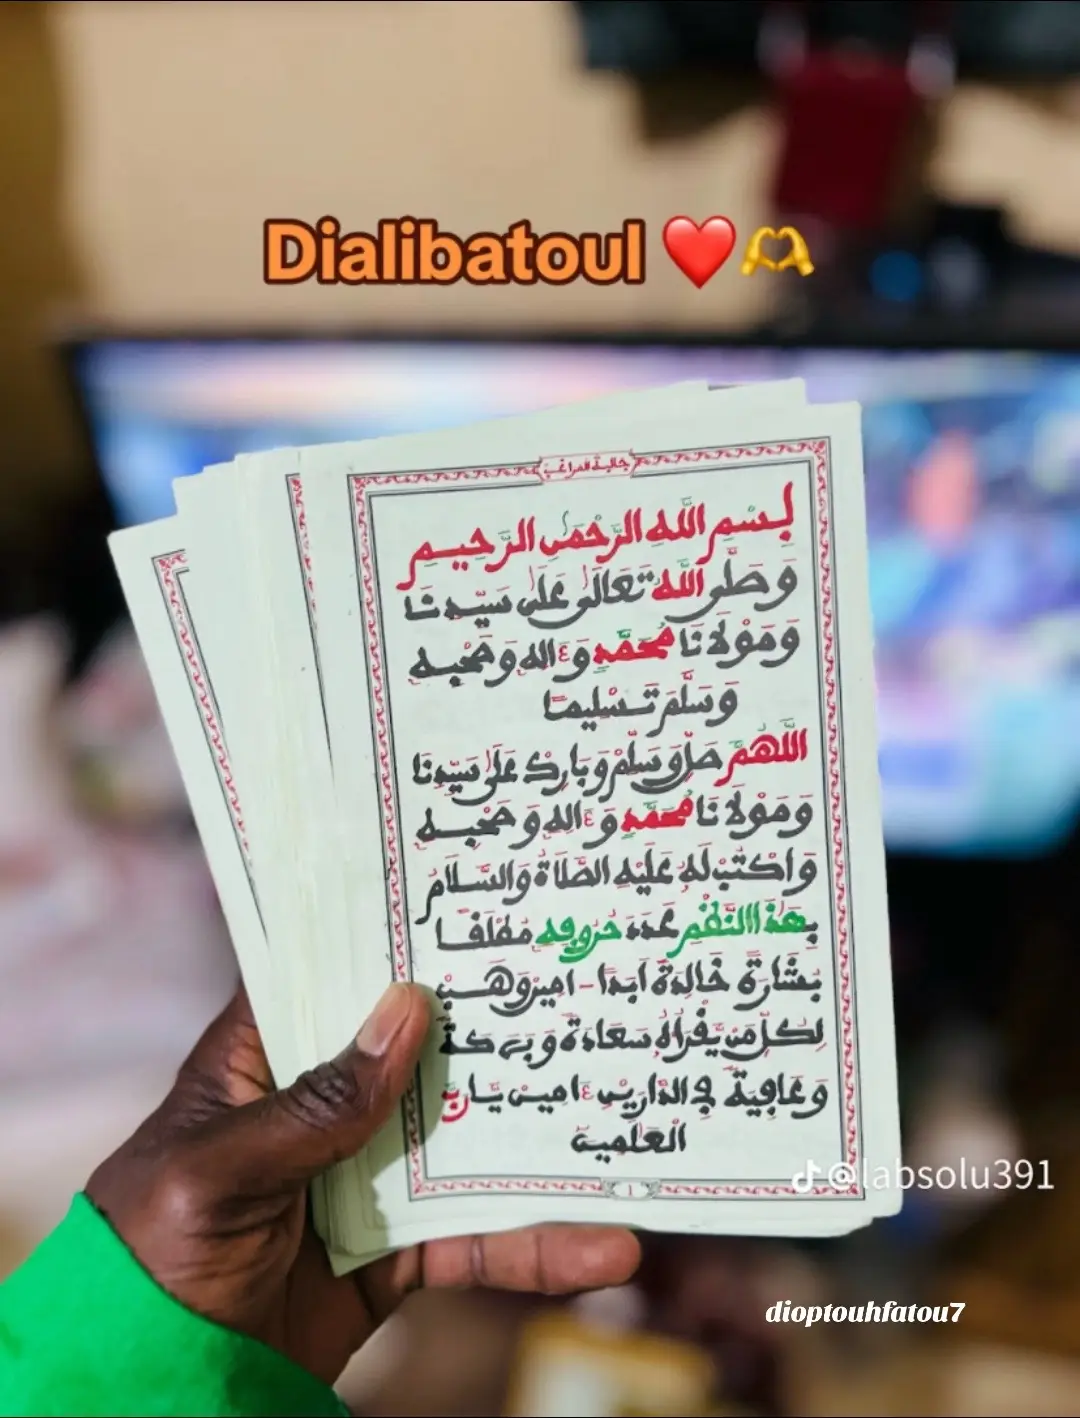 Dialibatoul ❤️🫶
جالبة المراغب
بِسْمِ اللَّهِ الرَّحْمَٰنِ الرَّحِيمِ
وَصَلَّى اللَّهُ تَعَالَى عَلَى سَيِّدِنَا
وَمَوْلَانَا مُحَمَّدٍ وَءَالِهِ وَصَحْبِهِ
وَسَلَّمَ تَسْلِيمًا
اللَّهُمَّ صَلِّ وَسَلِّمْ وَبَارِكْ عَلَى سَيِّدِنَا
وَمَوْلَانَا مُحَمَّدٍ وَءَالِهِ وَصَحْبِهِ
وَاكْتُبْ لَهُ عَلَيْهِ الصَّلَاةُ وَالسَّلَامُ
بِهَذَا النَّظْمِ عَدَدَ حُرُوفِهِ مُطْلَقًا
بِشَارَةً خَالِدَةً أَبَدًا - امِين وَهَبْ
لِكُلِّ مَن يَقْرَأُهُ سَعَادَةً وَبَرَكَةً
وَعَافِيَةً فِي الدَّارَيْنِ ءَامِين يَا رَبَّ
الْعَالَمِين
1
@labsolu391
dioptouhfatou7